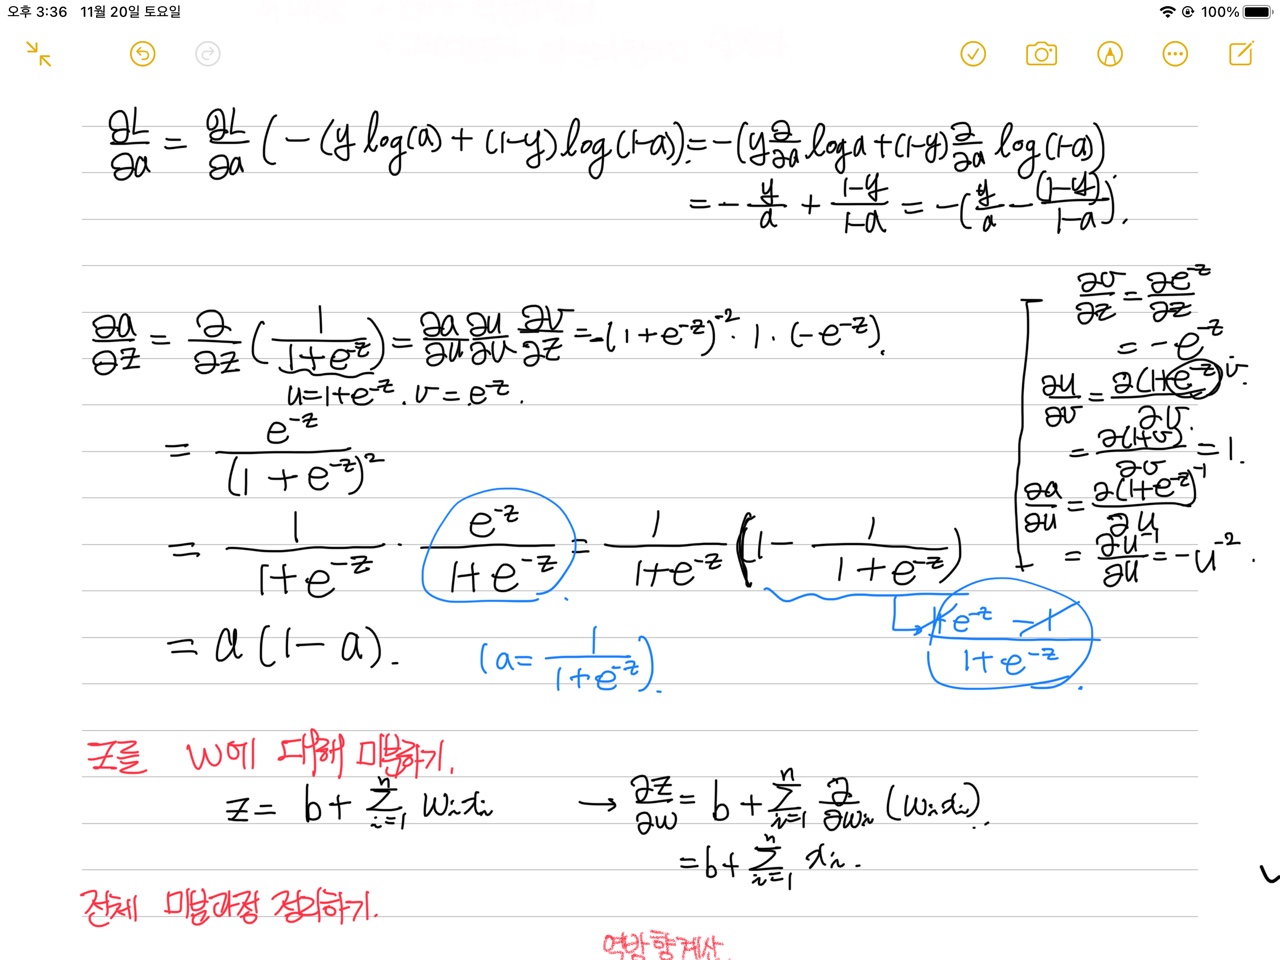 오후 3:36 11월 20일 토요일 100%
∂L/∂a = ∂L/∂a (-(y log(a) + (1-y) log(1-a)) = -(y ∂/∂a log a + (1-y) ∂/∂a log(1-a))
= - y/a + (1-y)/(1-a) = -(y/a - (1-y)/(1-a)).
∂a/∂z = ∂/∂z (1/(1+e^-z)) = ∂a/∂u ∂u/∂v ∂v/∂z = -(1+e^-z)^-2 · 1 · (-e^-z).
u = 1+e^-z. v = e^-z.
= e^-z/(1+e^-z)^2
= 1/(1+e^-z) · e^-z/(1+e^-z) = 1/(1+e^-z) (1 - 1/(1+e^-z))
= a(1-a). (a = 1/(1+e^-z)).
1+e^-z -1/1+e^-z.
∂v/∂z = ∂e^-z/∂z
= -e^-z
∂u/∂v = ∂(1+e^-z)/∂v v.
= ∂(1+v)/∂v = 1.
∂a/∂u = ∂(1+e^-z)^-1/∂u
= ∂u^-1/∂u = -u^-2.
Z를 W에 대해 미분하기.
z = b + Σ_{i=1}^{n} w_i x_i → ∂z/∂w = b + Σ_{i=1}^{n} ∂/∂w_i (w_i x_i).
= b + Σ_{i=1}^{n} x_i.
전체 미분과정 정리하기.
역방향계산.